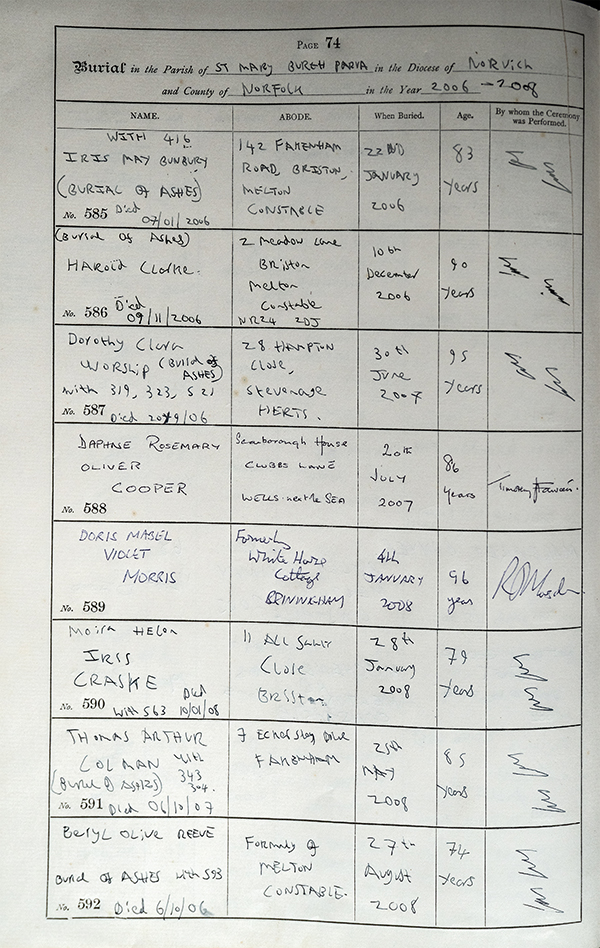 PAGE 74
Burial in the Parish of ST MARY BURGH PARVA in the Diocese of NORWICH
and County of NORFOLK in the Year 2006 - 2008
NAME. ABODE. When Buried. Age. By whom the Ceremony was Performed.
WITH 416
IRIS MAY BUNBURY
(BURIAL OF ASHES)
No. 585 Died 07/01/2006
142 FAKENHAM
ROAD, BRISTON,
MELTON
CONSTABLE
22ND
JANUARY
2006
83
years
(Burial of Ashes)
HAROLD Clarke.
No. 586 Died 09/11/2006
2 Meadow Lane
Briston
Melton
Constable
NR24 2DJ
10th
December
2006
90
years
Dorothy Clara
WORSHIP (Burial of ASHES)
with 319, 323, 521
No. 587 Died /9/06
28 HAMPTON
Close,
Stevenage
HERTS.
30th
JUNE
2007
95
years
DAPHNE ROSEMARY
OLIVER
COOPER
No. 588
Scarborough House
CLUBBS LANE
WELLS-next-the SEA
20th
JULY
2007
86
years
Timothy
DORIS MABEL
VIOLET
MORRIS
No. 589
Formerly
White Horse
Cottage
BRININGHAM
4th
JANUARY
2008
96
years
Moira Helen
IRIS
CRASKE
No. 590 with 563 Died 10/01/08
11 ALL SAINTS
Close
Briston
28th
January
2008
79
years
THOMAS ARTHUR
COLMAN with
(Burial of ASHES) 343
304.
No. 591 Died 06/10/07
7
FAKENHAM
25th
MAY
2008
85
years
Beryl Olive REEVE
Burial of ASHES with 593
No. 592 Died 6/10/06
Formerly of
MELTON
CONSTABLE.
27th
August
2008
74
years